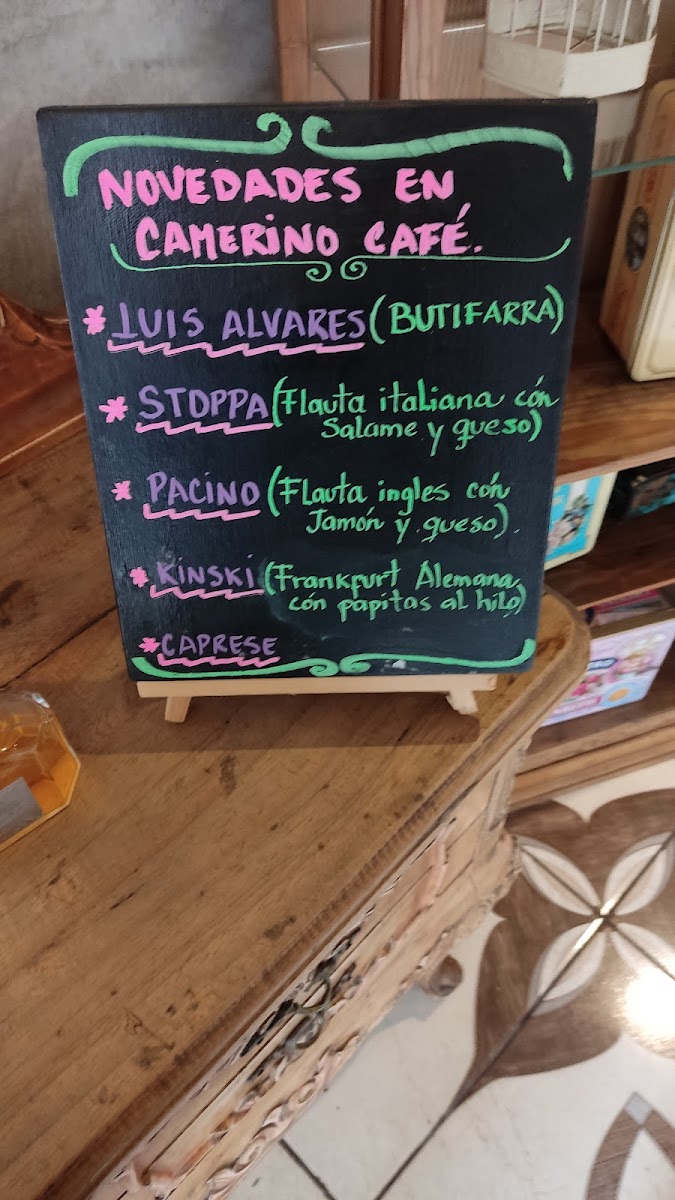 NOVEDADES EN
CAMERINO CAFÉ.
* LUIS ALVARES (BUTIFARRA)
* STOPPA (Flauta italiana cón
Salame y queso)
* PACINO (Flauta ingles cón
Jamón y queso).
* KINSKI (Frankfurt Alemana
cón papitas al hilo)
* CAPRESE